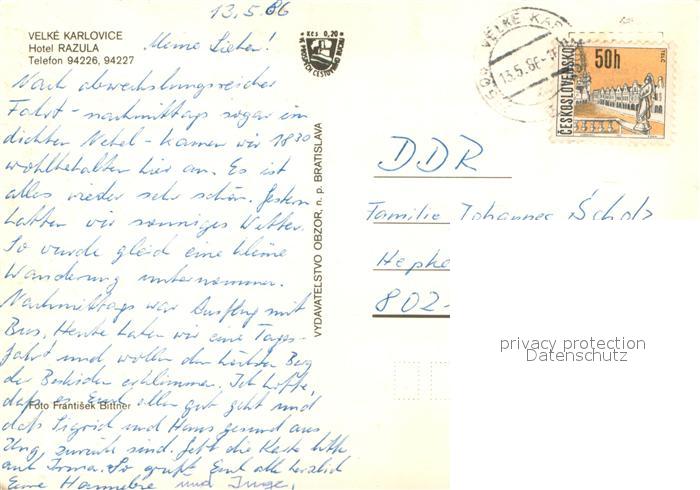 13.5.86
VELKÉ KARLOVICE
Hotel RAZULA
Telefon 94226, 94227
Meine Lieben!
Nach abwechslungsreicher
Fahrt - nachmittags sogar im
dichten Nebel - kamen wir 1830
wohlbehalten hier an. Es ist
alles wieder sehr schön. Gestern
hatten wir sonniges Wetter.
So wurde gleich eine kleine
Wanderung unternommen.
Nachmittags war Ausflug mit
Bus. Heute haben wir eine Tages-
fahrt und wollen den höchsten Berg
der Beskiden erklimmen. Ich hoffe,
daß es Euch allen gut geht und
Foto František Bittner
daß Sigrid und Hans gesund aus
Ung. zurück sind. Gebt die Karte bitte
an Irma. So grüßt Euch alle herzlich
Eure Hannelore und Inge.
Kčs 0,20
VYDAVATEĽSTVO OBZOR, n. p. BRATISLAVA
VELKÉ KAR
13.5.86
ČESKOSLOVENSKO
50h
TELČ
DDR
Familie Johannes Scholz
Hepke
802-
privacy protection
Datenschutz